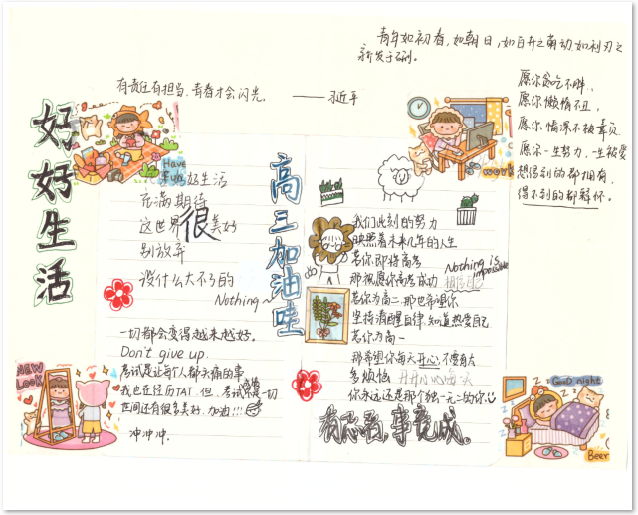 青年如初春,如朝日,如百卉之萌动,如利刃之
新发于硎。
有责任有担当,青春才会闪光。
——习近平
愿你贪吃不胖,
愿你懒惰不丑,
愿你情深不被辜负
愿你一生努力,一生被爱
想得到的都拥有,
得不到的都释怀。
好好生活
Have
fun
work
高三加油哇
好好生活
充满期待
这世界很美好
别放弃
没什么大不了的
Nothing~
一切都会变得越来越好。
Don't give up.
考试是让每个人都头疼的事
我也在经历TAT.但,考试不是一切
世间还有很多美好.加油!!!
冲冲冲.
我们此刻的努力
映照着未来几年的人生
若你即将高考
那祝愿你高考成功
相信自己
Nothing is
impossible
若你为高二,那也希望你
坚持清醒自律,知道热爱自己
若你为高一
那希望你每天开心,不要有太
多烦恼
开开心心每一天
你永远还是那个独一无二的你
有志者,事竟成。
NEW
LOOK
Good night
Beer